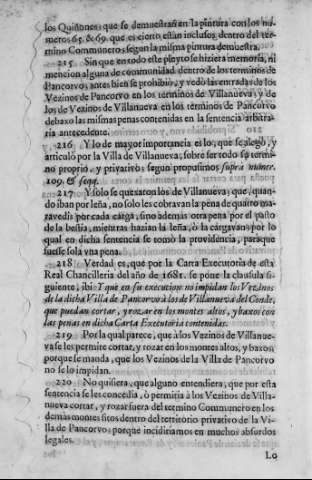 los Quiñones, que se demuestran en la pintura con los nu-
meros 65. & 69. que es cierto estàn inclusos, dentro del ter-
mino Communero, segun la misma pintura demuestra.
215. Sin que en todo este pleyto se hiziera memoria, ni
mencion alguna de communidad dentro de los terminos de
Pancorvo, antes bien se prohibiò, y vedò las entradas de los
Vezinos de Pancorvo en los terminos de Villanueva, y de
los de Vezinos de Villanueva en los terminos de Pancorvo
debaxo las mismas penas contenidas en la sentencia arbitra-
ria antecedente.
216 Y lo de mayor importancia es lo, que se alegò, y
articulò por la Villa de Villanueva, sobre ser todo su termi-
no proprio, y privativo, segun propusimos supra numer.
109. & seqq.
217 Y solo se quexaron los de Villanueva, que, quan-
do iban por leña, no solo les cobravan la pena de quatro ma-
ravedis por cada carga, sino ademàs otra pena por el pasto
de la bestia, mientras hazian la leña, ò la cargavan, por lo
qual en dicha sentencia se tomò la providencia, para que
fuesse sola vna pena.
218 Verdad es, que por la Carta Executoria de esta
Real Chancilleria del año de 1681. se pone la clausula si-
guiente, ibi: Y que en su execucion no impidan los Vezinos
de la dicha Villa de Pancorvo à los de Villanueva del Conde,
que puedan cortar, y rozar en los montes altos, y baxos con
las penas en dicha Carta Executoria contenidas.
219 Por la qual parece, que à los Vezinos de Villanue-
va se les permite cortar, y rozar en los montes altos, y baxos
porque se manda, que los Vezinos de la Villa de Pancorvo
no se lo impidan.
220 No quisiera, que alguno entendiera, que por esta
sentencia se les concedia, ò permitia à los Vezinos de Villa-
nueva cortar, y rozar fuera del termino Communero en los
demàs montes sitos dentro del territorio privativo de la Vi-
lla de Pancorvo; porque incidiriamos en muchos absurdos
legales.
Lo